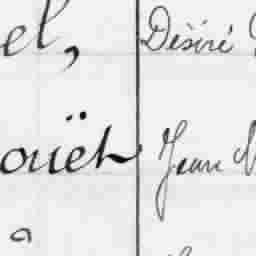 el, Désiré
ouët Jean